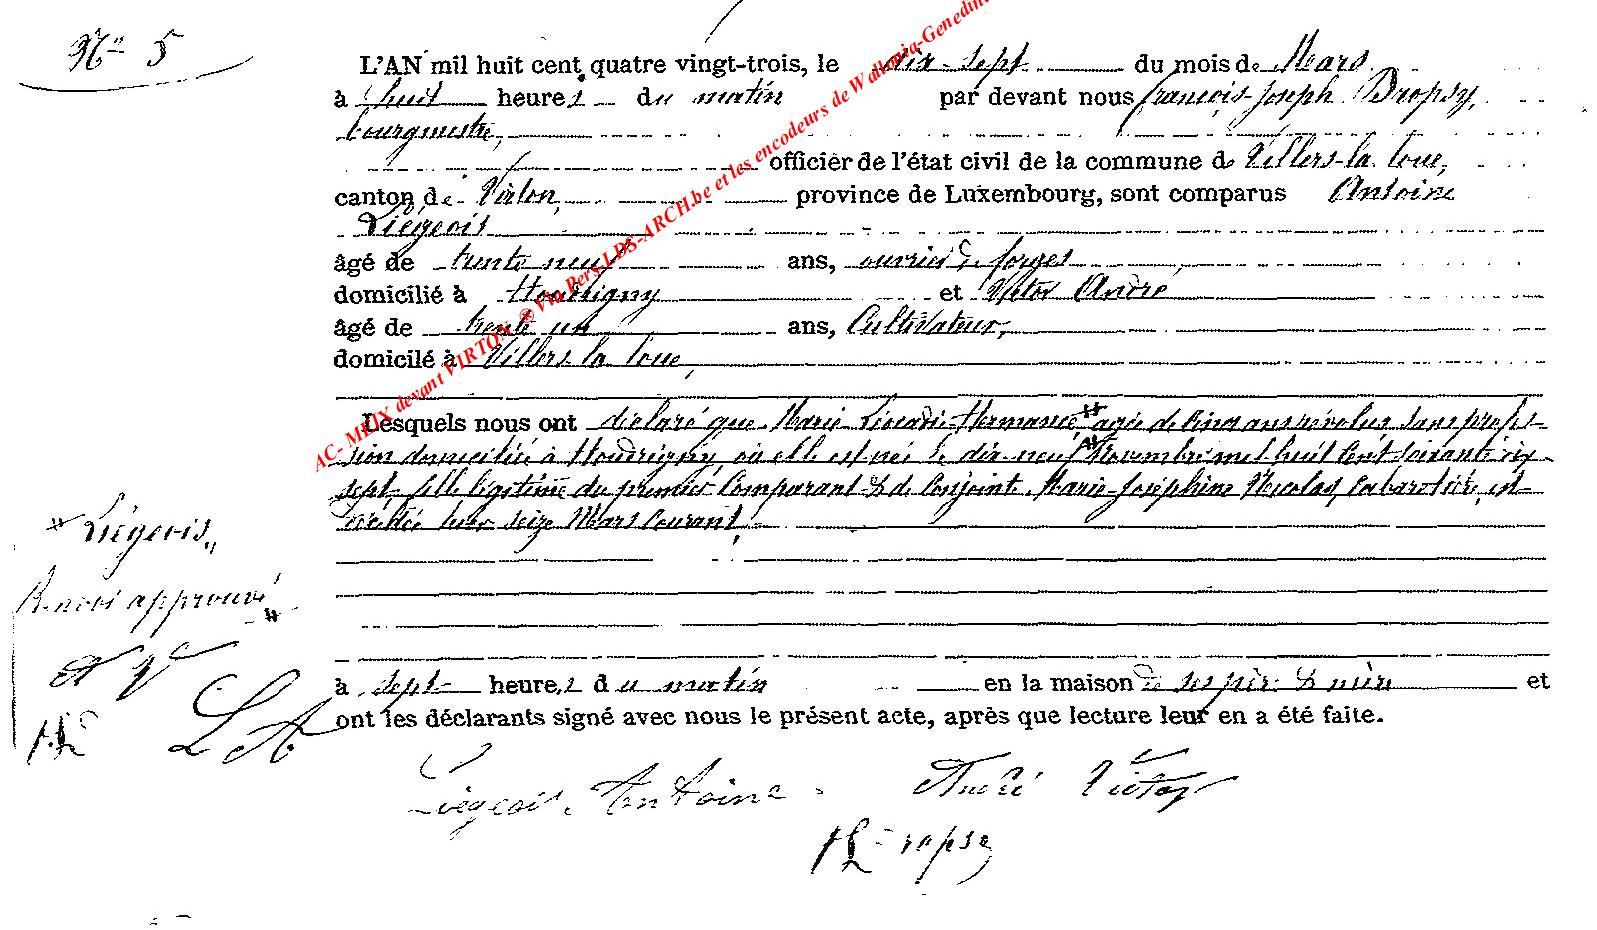 N° 5
L'AN mil huit cent quatre vingt-trois, le dix-sept du mois de Mars
à huit heures du matin par devant nous françois-Joseph Dropsy,
bourgmestre,
officier de l'état civil de la commune de Villers-la-loue,
canton de Virton, province de Luxembourg, sont comparus Antoine
Liégeois
âgé de trente neuf ans, ouvrier de forges
domicilié à Houdrigny et Victor André
âgé de trente un ans, Cultivateur,
domicilé à Villers-la-loue,
Lesquels nous ont déclaré que Marie Léocadie-Hermance # agée de Cinq ans révolus sans profes-
sion domiciliée à Houdrigny, où elle est née le dix-neuf Novembre mil huit Cent soixante dix
sept, fille légitime du premier Comparant & de Conjoint Marie-Joséphine Nicolas, Cabaretière, est
décédée hier seize Mars Courant,
# Liégeois,,
Renvoi approuvé
#
A V
LA
à sept heures du matin en la maison de ses père & mère et
ont les déclarants signé avec nous le présent acte, après que lecture leur en a été faite.
Liégeois Antoine André Victor
Dropsy
AC- MEIX devant VIRTON ® Via Pers-LDS-ARCH.be et les encodeurs de Wallonia-Genedinn